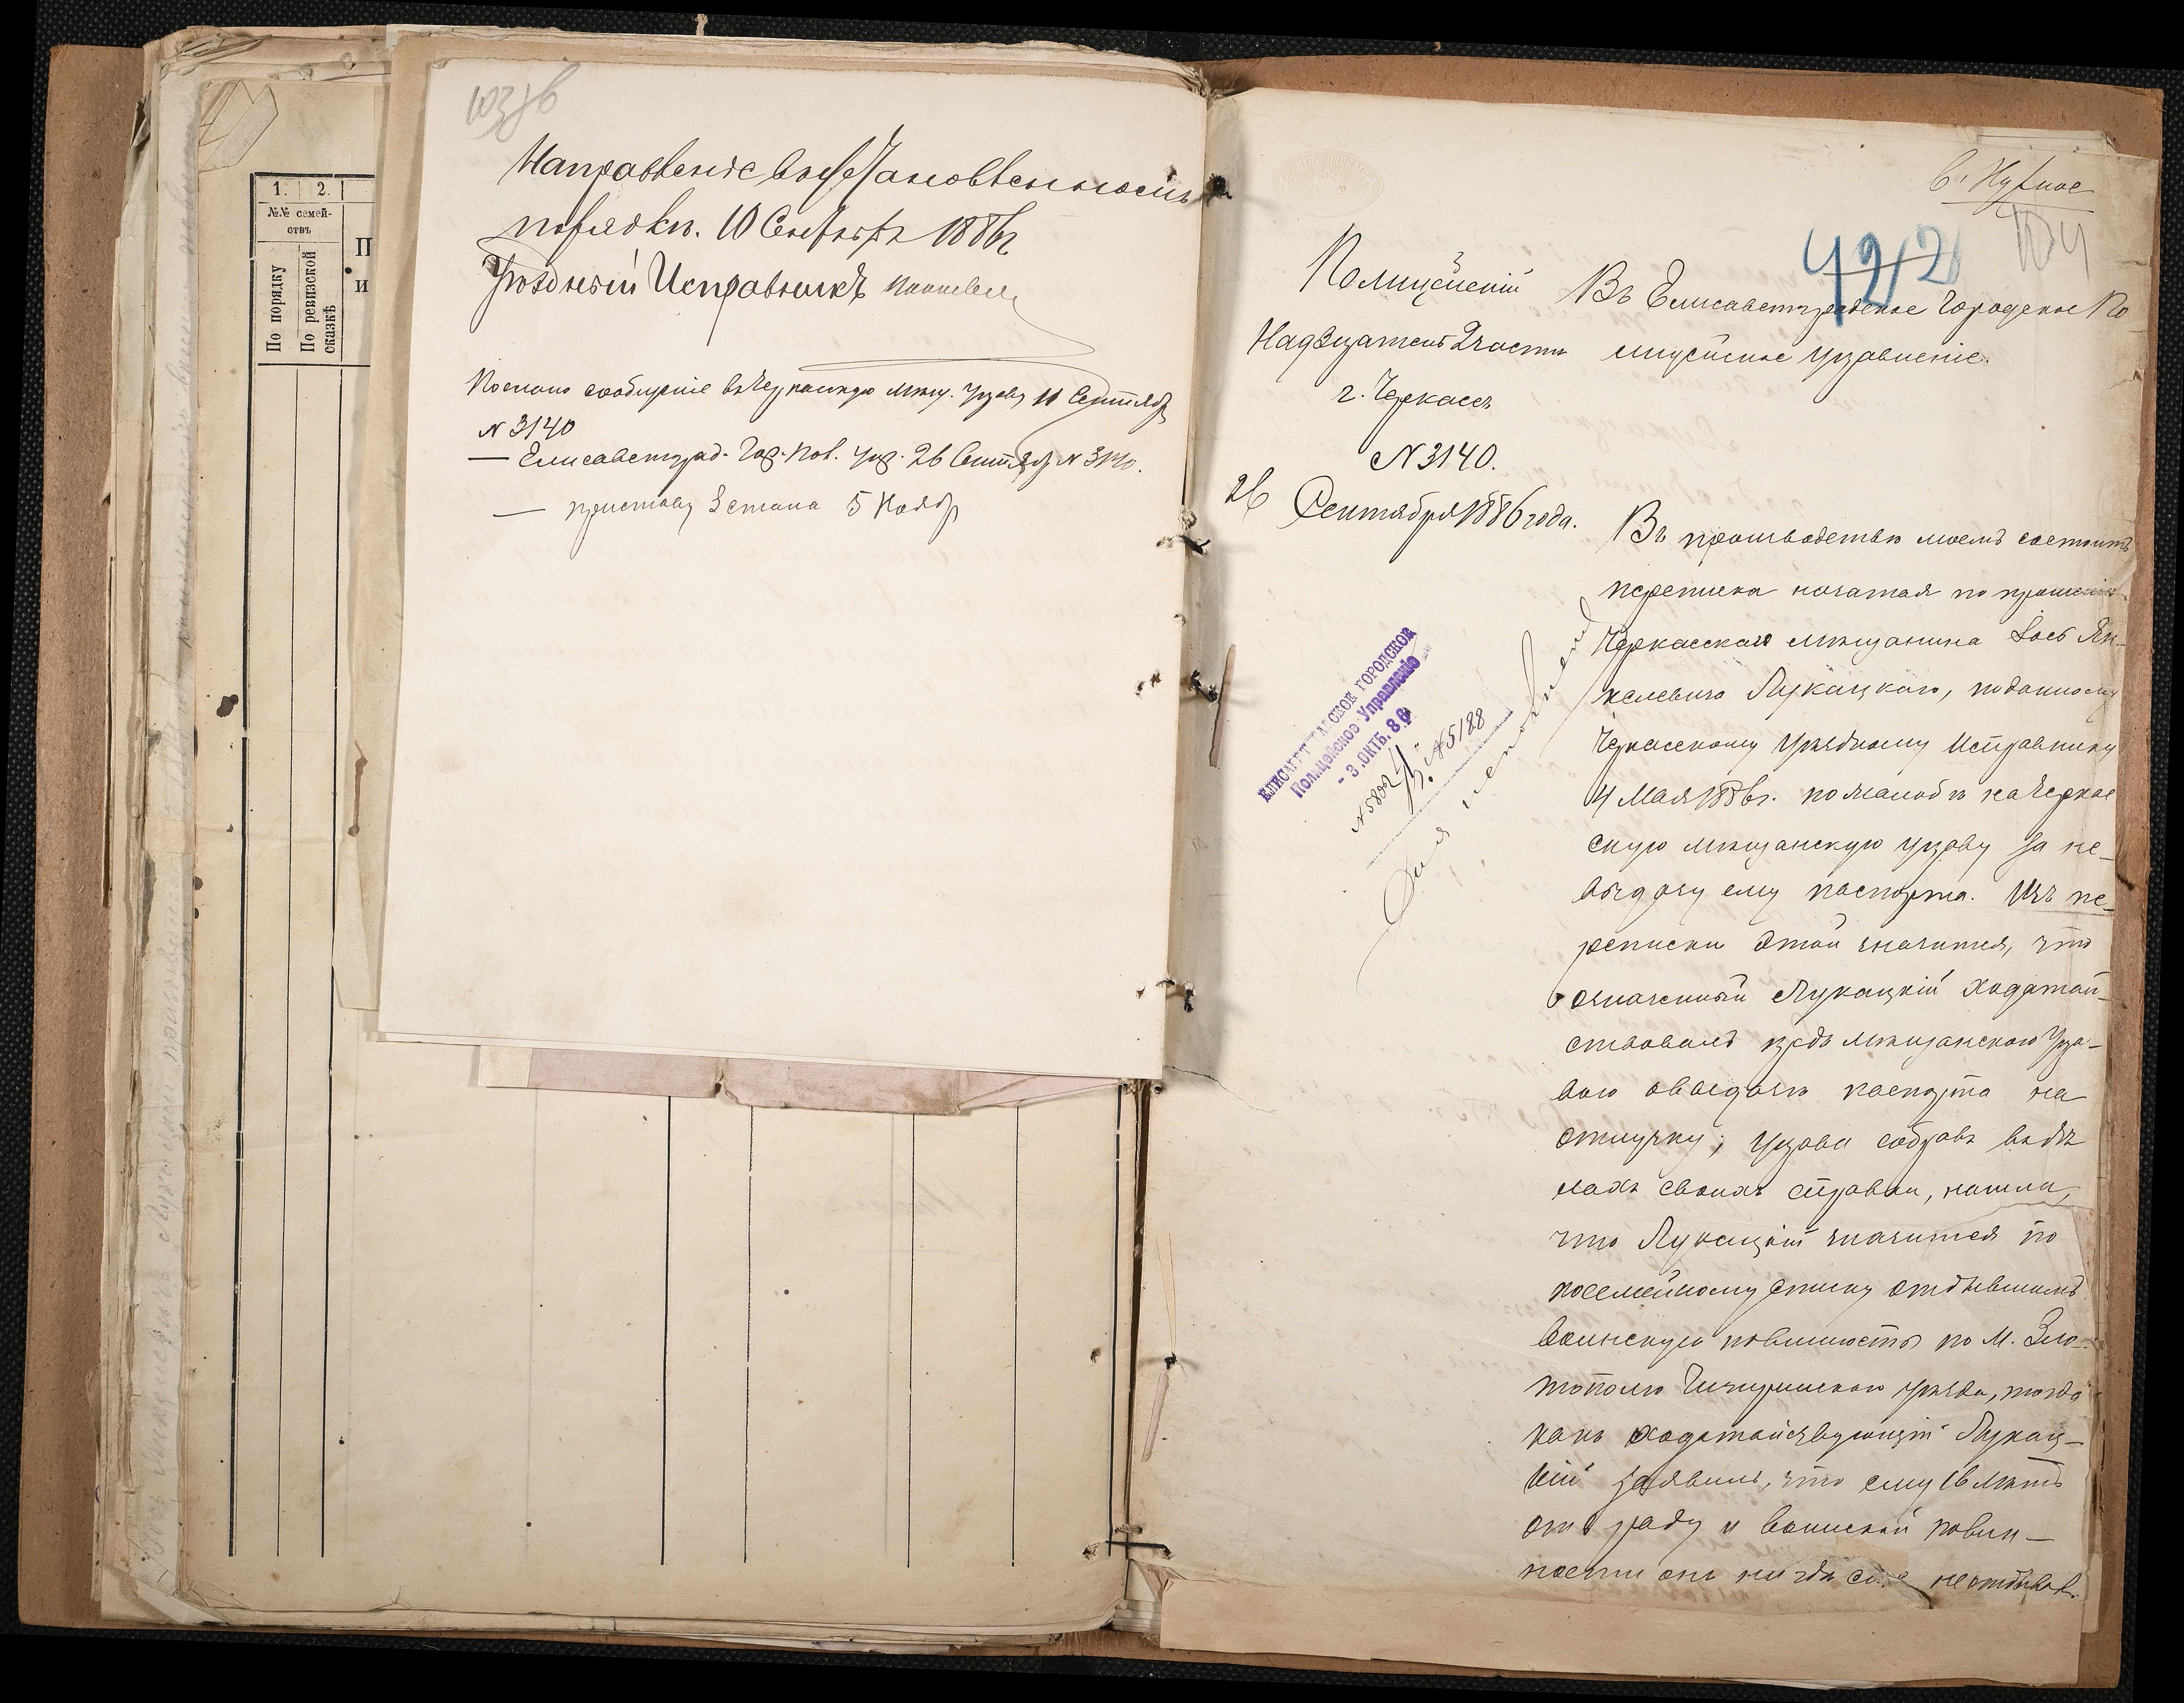 1. 2.
№№ семей-
ствъ
По порядку
По ревизской
сказкѣ
П
и
103 об
Направленіе въ установленномъ
порядкѣ. 10 Сентября 1886 г.
Уѣздный Исправникъ
Послано сообщеніе въ Черкасскую мѣщ. Управу 11 Сентября
N 3140
— Елисаветград. Гор. Пол. Упр. 26 Сентября N 3140.
— приставу 3 стана 5 Ноября
104
422
Полицейскій
Надзиратель 2 части
г. Черкассъ
N 3140.
26 Сентября 1886 года.
Въ Елисаветградское Городское По-
лицейское Управленіе.
ЕЛИСАВЕТГРАДСКОЕ ГОРОДСКОЕ
Полицейское Управленіе
- 3. ОКТЬ. 86
N 5802
N 5188
Въ производствѣ моемъ состоитъ
переписка начатая по прошенію
Черкасскаго мѣщанина Іось Ян-
келевича Лукацкаго, поданному
Черкасскому Уѣздному Исправнику
4 Мая 1886 г. по жалобѣ на Черкас
скую мѣщанскую управу за не-
выдачу ему паспорта. Изъ пе-
реписки этой значится, что
означенный Лукацкій ходатай-
ствовалъ предъ мѣщанскою Упра-
вою о выдачѣ паспорта на
отлучку; Управа собравъ въ дѣ
лахъ своихъ справки, нашла,
что Лукацкій значится по
посемейному списку отбывшимъ
воинскую повинность по М. Зла-
тополю Чигиринскаго уѣзда, тогда
какъ ходатайствующій Лукац-
кій заявилъ, что ему 16 лѣтъ
отъ роду и воинской повин-
ности онъ нигдѣ еще не отбывал.